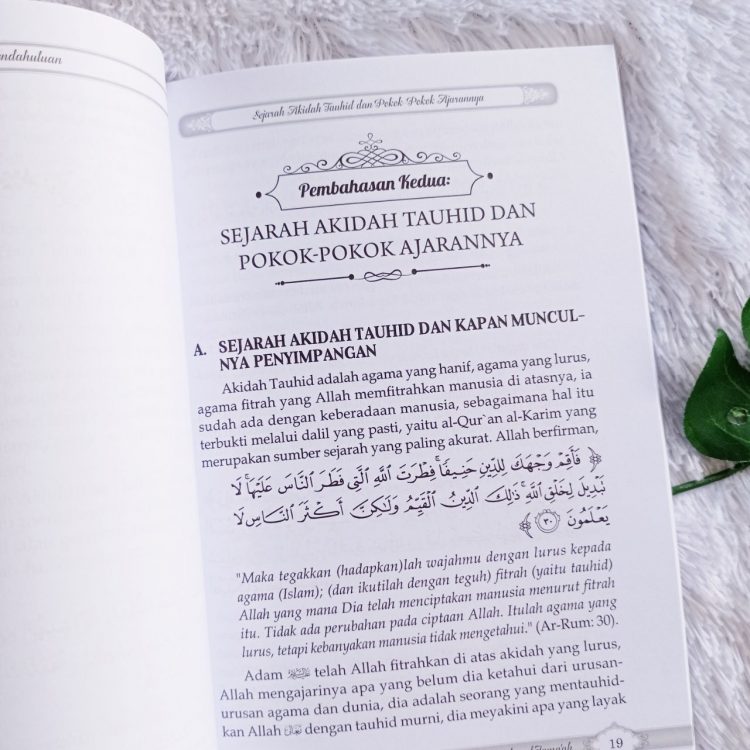 ndahuluan
Sejarah Akidah Tauhid dan Pokok-Pokok Ajarannya
Pembahasan Kedua:
SEJARAH AKIDAH TAUHID DAN
POKOK-POKOK AJARANNYA
A. SEJARAH AKIDAH TAUHID DAN KAPAN MUNCUL-
NYA PENYIMPANGAN
Akidah Tauhid adalah agama yang hanif, agama yang lurus,
agama fitrah yang Allah memfitrahkan manusia di atasnya, ia
sudah ada dengan keberadaan manusia, sebagaimana hal itu
terbukti melalui dalil yang pasti, yaitu al-Qur`an al-Karim yang
merupakan sumber sejarah yang paling akurat. Allah berfirman,
﴿ فَأَقِمْ وَجْهَكَ لِلدِّينِ حَنِيفًا ۚ فِطْرَتَ ٱللَّهِ ٱلَّتِى فَطَرَ ٱلنَّاسَ عَلَيْهَا ۚ لَا
تَبْدِيلَ لِخَلْقِ ٱللَّهِ ۚ ذَٰلِكَ ٱلدِّينُ ٱلْقَيِّمُ وَلَٰكِنَّ أَكْثَرَ ٱلنَّاسِ لَا
يَعْلَمُونَ ٣٠ ﴾
"Maka tegakkan (hadapkan)lah wajahmu dengan lurus kepada
agama (Islam); (dan ikutilah dengan teguh) fitrah (yaitu tauhid)
Allah yang mana Dia telah menciptakan manusia menurut fitrah
itu. Tidak ada perubahan pada ciptaan Allah. Itulah agama yang
lurus, tetapi kebanyakan manusia tidak mengetahui." (Ar-Rum: 30).
Adam telah Allah fitrahkan di atas akidah yang lurus,
Allah mengajarinya apa yang belum dia ketahui dari urusan-
urusan agama dan dunia, dia adalah seorang yang mentauhid-
kan Allah ﷻ dengan tauhid murni, dia meyakini apa yang layak
19